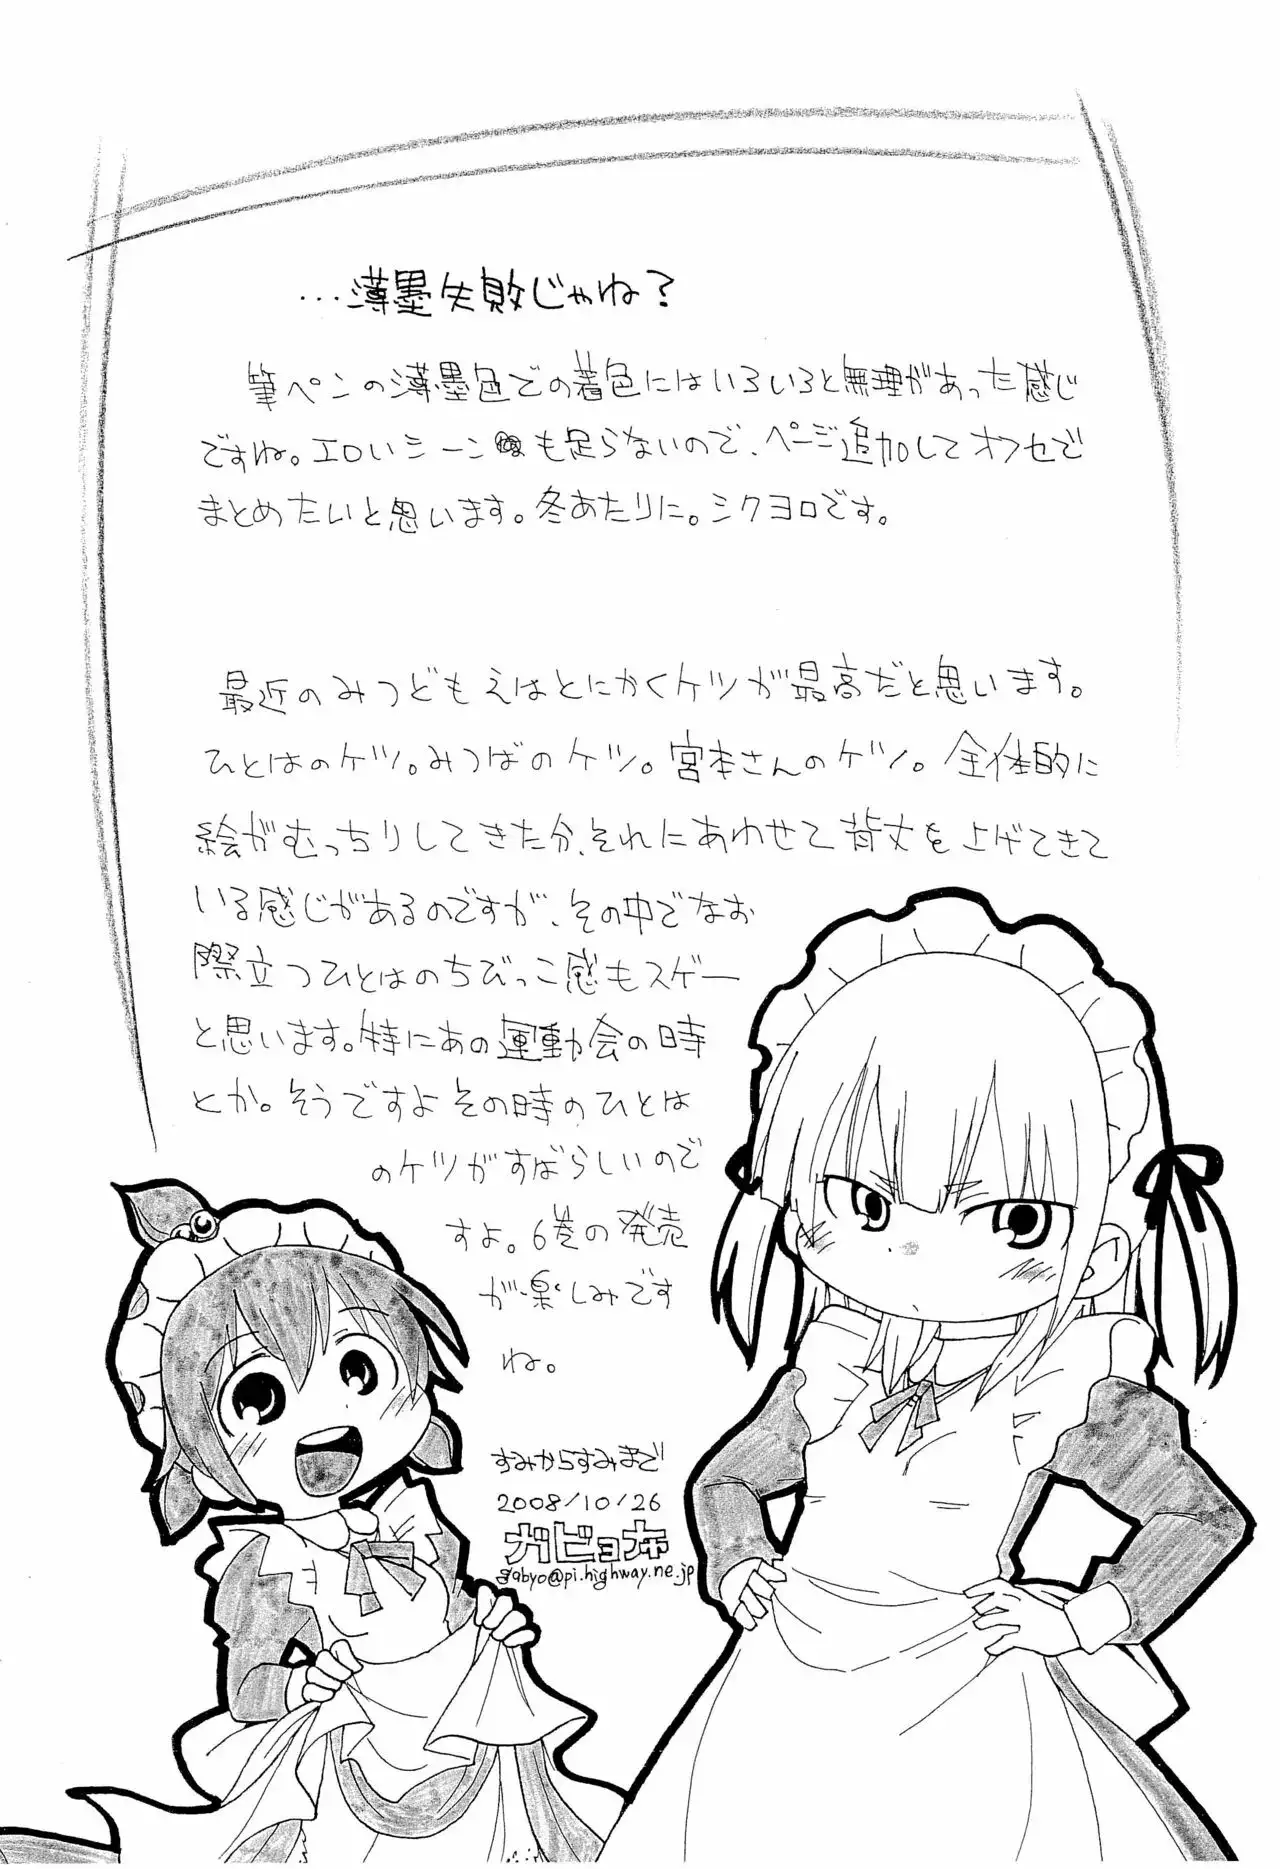 …薄墨失敗じゃね？
筆ペンの薄墨色での着色にはいろいろと無理があった感じ
ですね。エロいシーンも足らないので、ページ追加してオフセで
まとめたいと思います。冬あたりに。シクヨロです。
最近のみつどもえはとにかくケツが最高だと思います。
ひとはのケツ。みつばのケツ。宮本さんのケツ。全体的に
絵がむっちりしてきたか、それにあわせて背丈を上げてきて
いる感じがあるのですが、その中でなお
際立つひとはのちびっこ感もスゲー
と思います。特にあの運動会の時
とか。そうですよその時のひとは
のケツがすばらしいので
すよ。6巻の発売
が楽しみです
ね。
すみからすみまで
2008/10/26
ガビョ布
gabyo@pi.highway.ne.jp